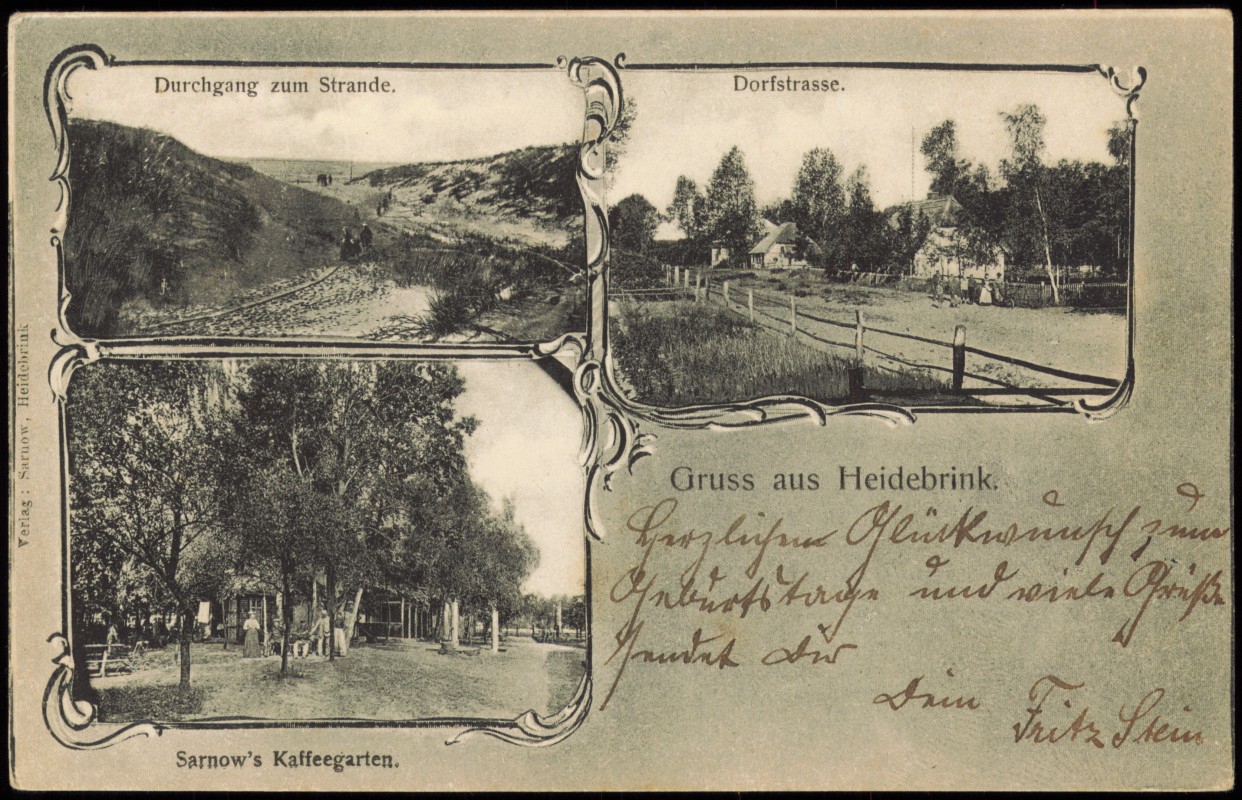 Durchgang zum Strande.
Dorfstrasse.
Verlag: Sarnow, Heidebrink
Sarnow's Kaffeegarten.
Gruss aus Heidebrink.
Herzlichen Glückwunsch zum
Geburtstage und viele Grüße
sendet Dir
Dein
Fritz Stein